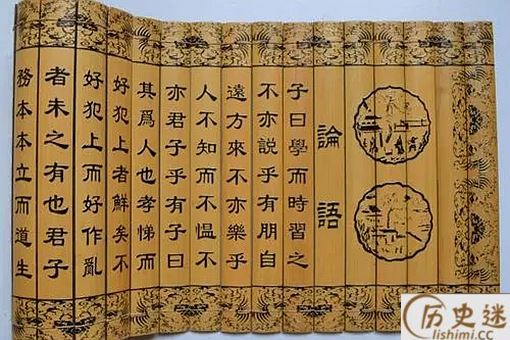 論語
子曰學而時習之
不亦說乎有朋自
遠方來不亦樂乎
人不知而不慍不
亦君子乎有子曰
其爲人也孝悌而
好犯上者鮮矣不
好犯上而好作亂
者未之有也君子
務本本立而道生
历史迷
lishimi.cc